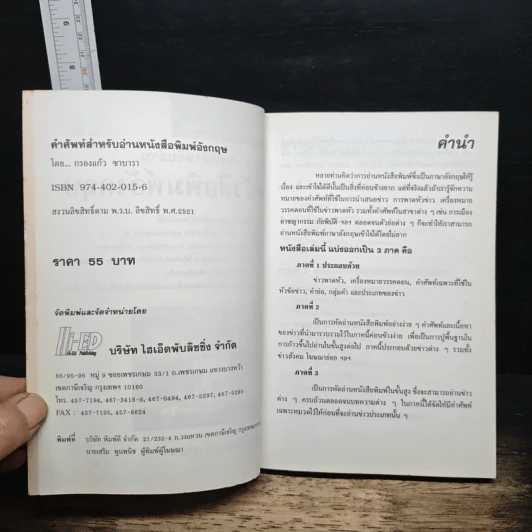 คำศัพท์สำหรับอ่านหนังสือพิมพ์อังกฤษ
โดย... กรองแก้ว ซาบารา
ISBN 974-402-015-6
สงวนลิขสิทธิ์ตาม พ.ร.บ. ลิขสิทธิ์ พ.ศ.2521
ราคา 55 บาท
จัดพิมพ์และจัดจำหน่ายโดย
Hi-ED
Publishing
บริษัท ไฮเอ็ดพับลิชชิ่ง จำกัด
88/95-96 หมู่ 9 ซอยเพชรเกษม 33/1 ถ.เพชรเกษม แขวงบางหว้า
เขตภาษีเจริญ กรุงเทพฯ 10160
โทร. 457-7194, 467-3418-9, 467-0494, 467-5297, 467-5295
FAX : 457-7195, 457-8624
พิมพ์ที่ บริษัท พิมพ์ดี จำกัด เขตภาษีเจริญ
นายเสริม พูนพนิช ผู้พิมพ์ผู้โฆษณา
คำนำ
หลายท่านคิดว่าการอ่านหนังสือพิมพ์ซึ่งเป็นภาษาอังกฤษให้รู้
เรื่อง และเข้าใจได้ดีนั้นเป็นสิ่งที่ค่อนข้างยาก แต่ที่จริงแล้วถ้าเรารู้จักความ
หมายของคำศัพท์ที่ใช้ในการนำเสนอข่าว การพาดหัวข่าว เครื่องหมาย
วรรคตอนที่ใช้ในข่าวพาดหัว รวมทั้งคำศัพท์ในสาขาต่าง ๆ เช่น การเมือง
อาชญากรรม ภัยพิบัติ ฯลฯ ตลอดจนตัวย่อต่าง ๆ ก็จะทำให้เราสามารถ
อ่านหนังสือพิมพ์ภาษาอังกฤษเข้าใจได้โดยไม่ยาก
หนังสือเล่มนี้ แบ่งออกเป็น 3 ภาค คือ
ภาคที่ 1 ประกอบด้วย
ข่าวพาดหัว, เครื่องหมายวรรคตอน, คำศัพท์เฉพาะที่ใช้ใน
หัวข้อข่าว, คำย่อ, กลุ่มคำ และประเภทของข่าว
ภาคที่ 2
เป็นการหัดอ่านหนังสือพิมพ์อย่างง่าย ๆ คำศัพท์และเนื้อหา
ของข่าวที่นำมารวบรวมไว้ในภาคนี้ค่อนข้างง่าย เพื่อเป็นการปูพื้นฐานใน
การก้าวขึ้นไปอ่านในขั้นสูงต่อไป ภาคนี้ประกอบด้วยข่าวต่าง ๆ รวมทั้ง
ข่าวสังคม โฆษณาย่อย ฯลฯ
ภาคที่ 3
เป็นการหัดอ่านหนังสือพิมพ์ในขั้นสูง ซึ่งจะสามารถอ่านข่าว
ต่าง ๆ ครบถ้วนตลอดจนบทความต่าง ๆ ในภาคนี้ได้จัดให้มีคำศัพท์
เฉพาะหมวดไว้ให้ก่อนที่จะอ่านข่าวประเภทนั้น ๆ